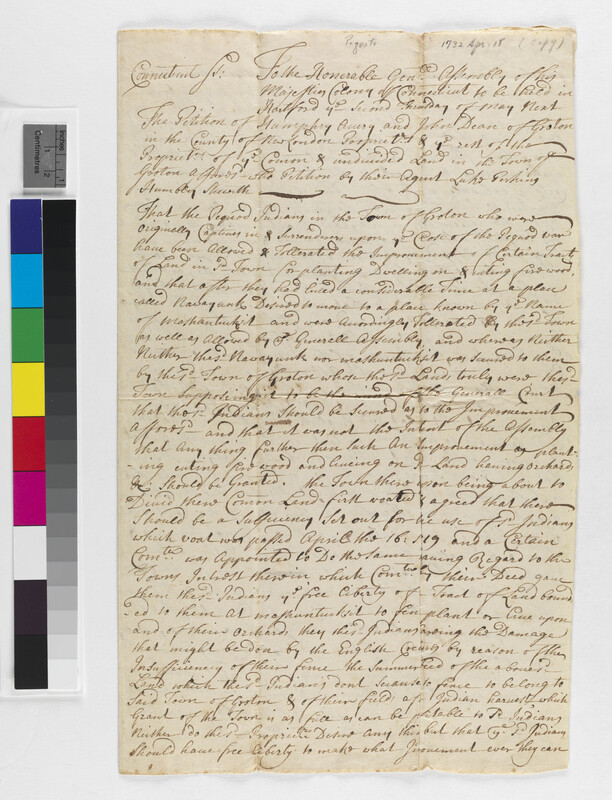 Pequots 1732 Apr. 18 (Copy)
Connecticut Ss: To the Honerable Genll Assembly of his
Majesties Colony of Connecticut to be held in
Hartford ye Second Thursday of May Next
The Petition of Humphry Avery and John Dean of Groton
in the County of New London Propriets & ye rest of the
Propriets of ye Comon & undivided Land in the Town of
Groton Aforesd the Petition by their Agent Luke Perkins
Humbly Sheweth
That the Pequod Indians in the Town of Groton who were
Originally Captives in & Surrenders upon ye Close of the Pequod war
have been Allowed & Tollerated the Improvement of Certain Tract
of Land in sd Town for planting Dwelling on & cuting fire wood,
and that after they had lived a considerable Time at a place
called Nawayunk Desired to move to a place known by ye Name
of Mashantuksit and were Accordingly Tollerated by thesd Town
as well as Allowed by ye Generall Assembly, and whereas Neither
Neither thesd Nawayunk nor mashuntuksit was Secured to them
by thesd Town of Groton whose thesd Lands truly were thesd
Town Supposeing it to be the mind of the Generall Court
that thesd Indians Should be Secured as to the Improvement
Aforesd and that it was not the Intent of the Assembly
that Any thing further then Such An Improvement as plant-
-ing cuting fire wood and liveing on sd Land haveing orchards
& Should be Granted. the Town there upon being about to
Divid there Comon Land first voated & agreed that there
Should be a Sufficiency Set out for the use of sd Indians
which voat was passed April the 16: 1719 and a Certain
Comtte was Appointed to Do the Same having Regard to the
Towns Intrest therein which Comtte by their Deed gave
them thesd Indians ye free Liberty of Tract of Land bound
-ed to them At mashuntuksit to fence plant or Live upon
and of their Orchards they thesd Indians the Damage
that might bedon by the English by reason of the
Insufficiency of their fence the of the abovesd
Land which thesd Indians dont fence to belong to
Said Town of Groton & of their field after Indian harvest which
Grant of the Town is as free as can be to sd Indians
Neither do thesd Propriets Desire Any thing but that ye sd Indians
Should have free Liberty to make what Improvement ever they can
Inches
Centimetres